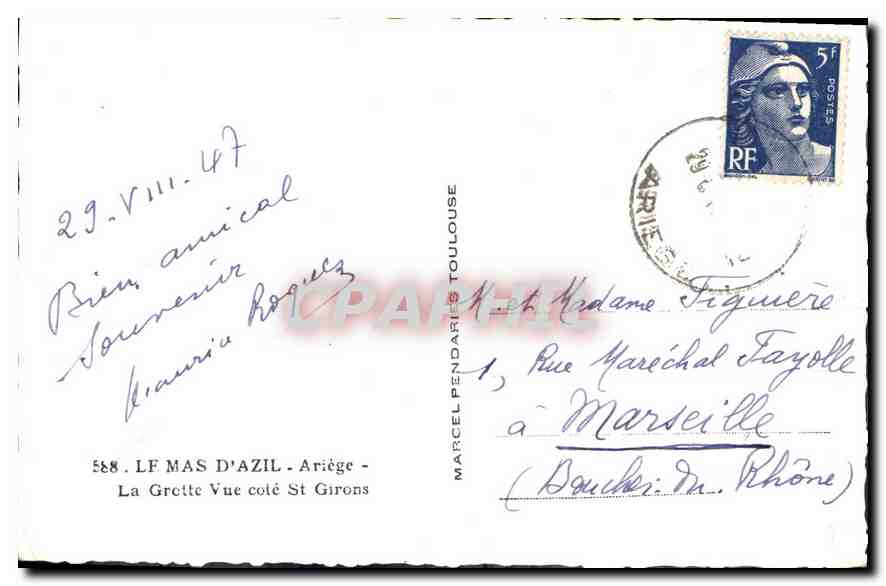 29-VIII-47
Bien amical
Souvenir
588. LE MAS D'AZIL - Ariège -
La Grotte Vue coté St Girons
MARCEL PENDARIES TOULOUSE
5F
POSTES
RF
ARIEGE
CPAPHIL
M. et Madame Figuière
1, Rue Maréchal Fayolle
à Marseille
(Bouches-du-Rhône)